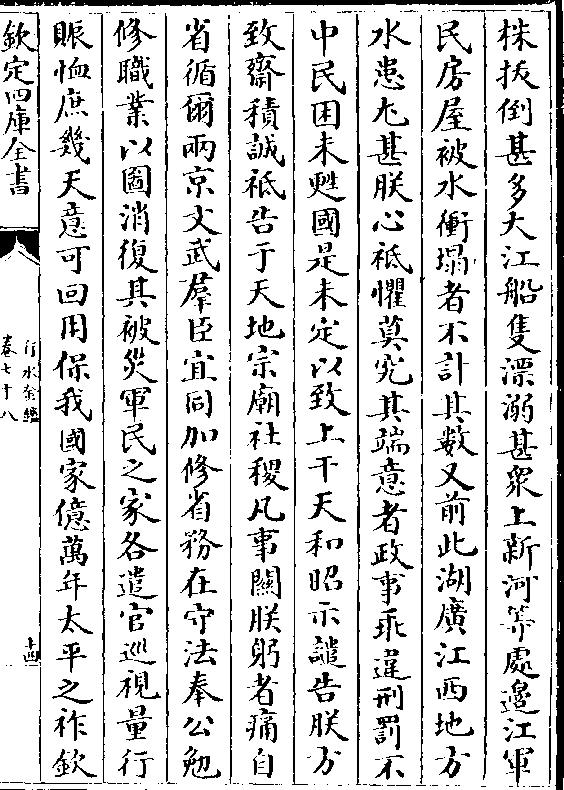 株拔倒甚多大江船隻漂溺甚衆上新河等處邉江軍
民房屋被水衝塌者不計其數又前此湖廣江西地方
水患尤甚朕心祗懼莫究其端意者政事乖違刑罰不
中民困未甦國是未定以致上干天和昭示譴告朕方
致齋積誠祗告于天地宗廟社稷凡事關朕躬者痛自
省循爾兩京文武羣臣宜同加修省務在守法奉公勉
修職業以圖消復其被災軍民之家各遣官巡視量行
賑恤庶幾天意可回用保我國家億萬年太平之祚欽
欽定四庫全書
行水金鑑
卷七十八
十四